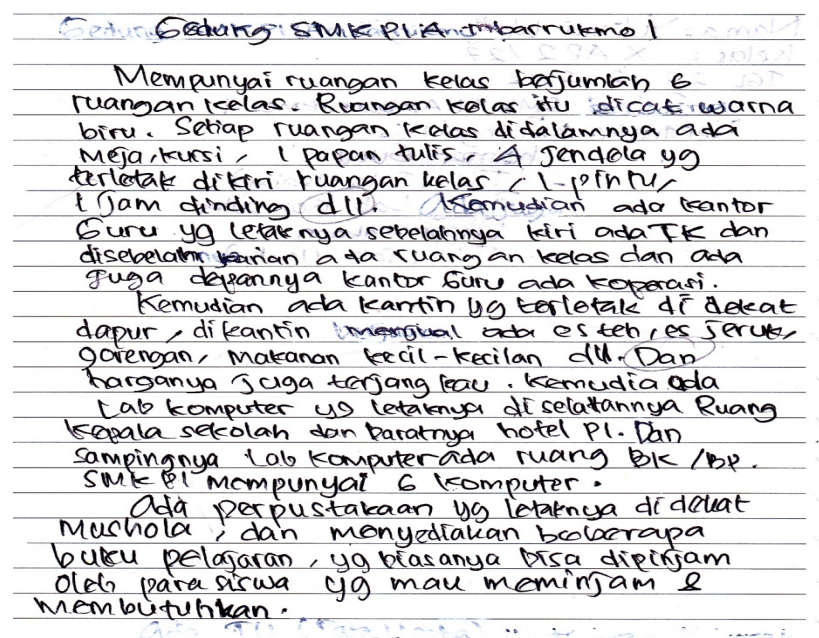 Gedung SMK PIA mbarrukmo 1
Mempunyai ruangan kelas berjumlah 6
ruangan kelas. Ruangan kelas itu dicat warna
biru. Setiap ruangan kelas didalamnya ada
Meja, kursi, 1 papan tulis, 4 Jendela yg
terletak dikiri ruangan kelas, 1 pintu,
1 Jam dinding dll. Kemudian ada kantor
Guru yg letaknya sebelahnya kiri ada TK dan
disebelah kanan ada ruangan kelas dan ada
Juga depannya kantor Guru ada koperasi.
Kemudian ada kantin yg terletak di dekat
dapur, dikantin menjual ada es teh, es Jeruk,
gorengan, Makanan kecil-kecilan dll. Dan
harganya Juga terjangkau. Kemudia ada
Lab komputer yg letaknya di selatannya Ruang
kepala sekolah dan baratnya hotel PI. Dan
sampingnya Lab komputer ada ruang BK/BP.
SMK PI Mempunyai 6 komputer.
Ada perpustakaan yg letaknya di dekat
Mushola, dan menyediakan beberapa
buku pelajaran, yg biasanya bisa dipinjam
oleh para siswa yg mau meminjam &
Membutuhkan.